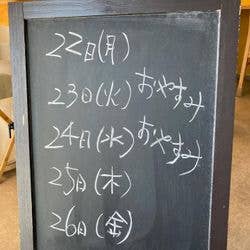 22日(月)
23日(火)おやすみ
24日(水)おやすみ
25日(木)
26日(金)